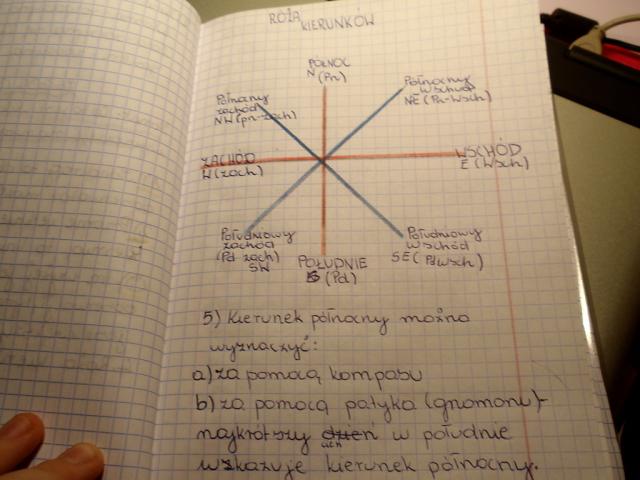 RÓŻA KIERUNKÓW
PÓŁNOC
N (Pn)
Północny
wschód
NE (Pn-Wsch)
Północny
zachód
NW (pn-zach)
ZACHÓD
W (zach)
WSCHÓD
E (Wsch)
Południowy
zachód
(Pd-zach)
SW
POŁUDNIE
S (Pd)
Południowy
wschód
SE (Pdwsch)
5) Kierunek północny można
wyznaczyć:
a) za pomocą kompasu
b) za pomocą patyka (gnomonu)-
najkrótszy dzień w południe
wskazuje kierunek północny.